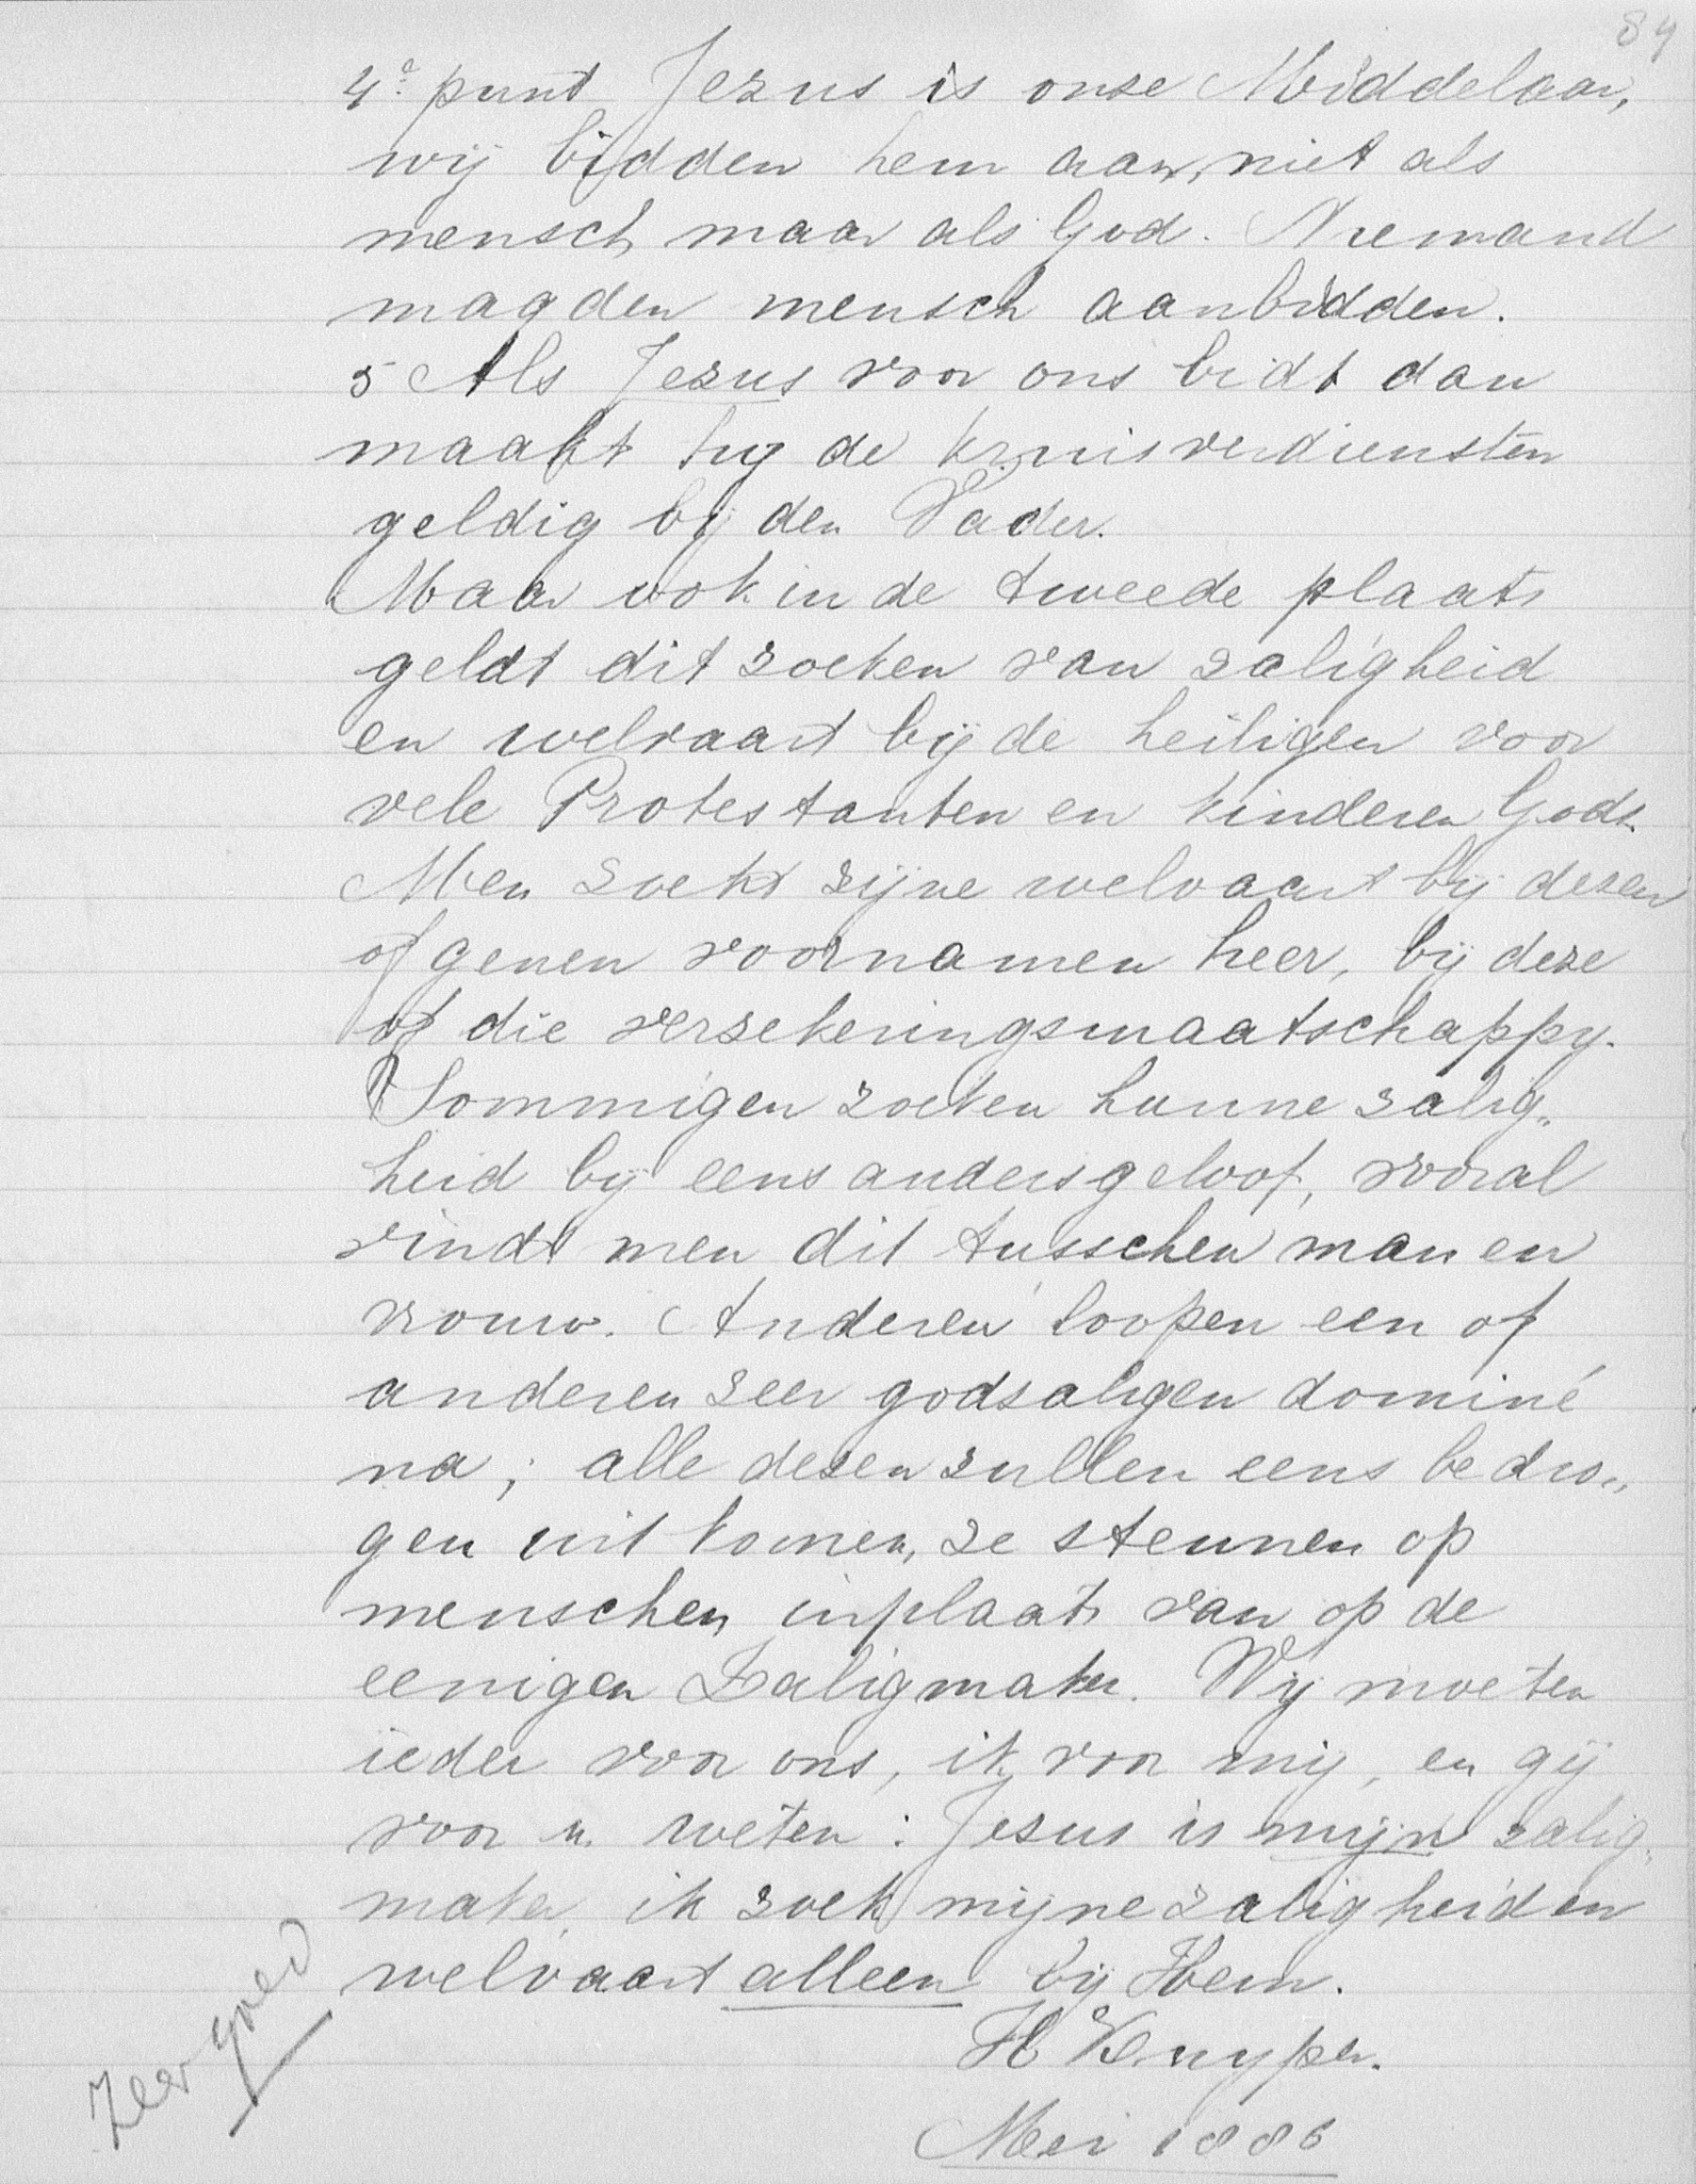 84
4e punt Jezus is onze Middelaar,
wij bidden hem aan, niet als
mensch maar als God. Niemand
mag den mensch aanbidden.
5 Als Jezus voor ons bidt dan
maakt hij de kruisverdiensten
geldig bij den Vader.
Maar ook in de tweede plaats
geldt dit zoeken van zaligheid
en welvaart bij de heiligen voor
vele Protestanten en kinderen Gods.
Men zoekt zijne welvaart bij dezen
of genen voornamen heer, bij deze
of die verzekeringsmaatschappy.
Sommigen zoeken hunne zalig„
heid bij eens anders geloof, vooral
vindt men dit tusschen man en
vrouw. Anderen loopen een of
anderen zeer godzaligen dominé
na; alle dezen zullen eens bedro„
gen uit komen, ze steunen op
menschen inplaats van op de
eenigen Zaligmaker. Wij moeten
ieder voor ons, ik voor mij, en gij
voor u weten: Jezus is mijn zalig„
maker, ik zoek mijne zaligheid en
welvaart alleen bij Hem.
H Kuyper.
Mei 1886
Zeer goed